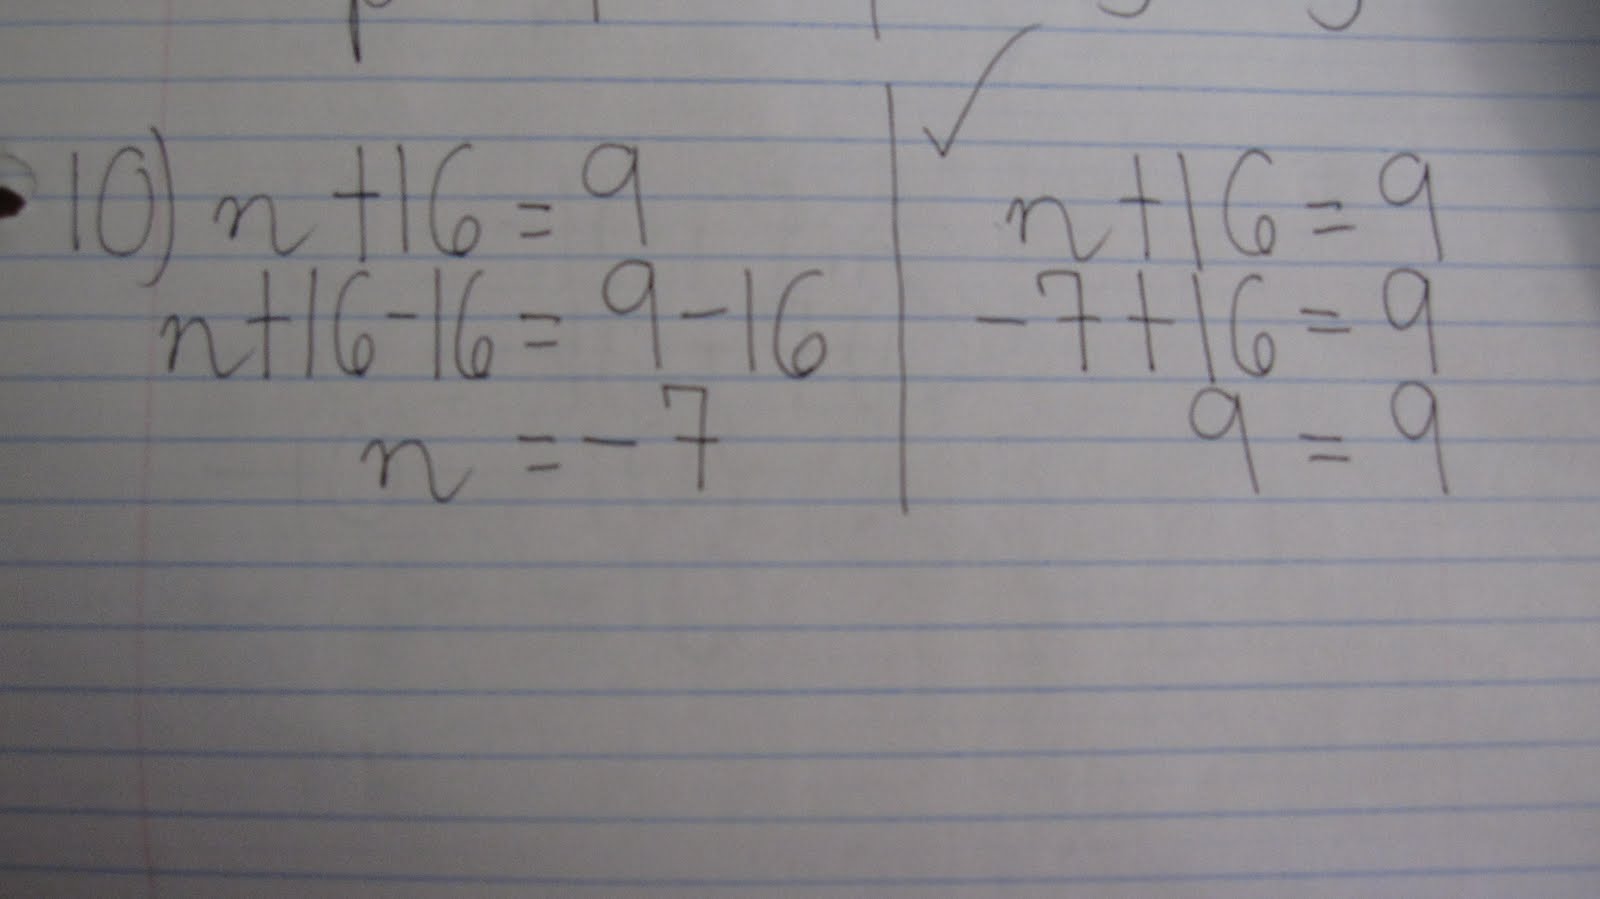 10) n + 16 = 9
n + 16 - 16 = 9 - 16
n = - 7
✓
n + 16 = 9
- 7 + 16 = 9
9 = 9